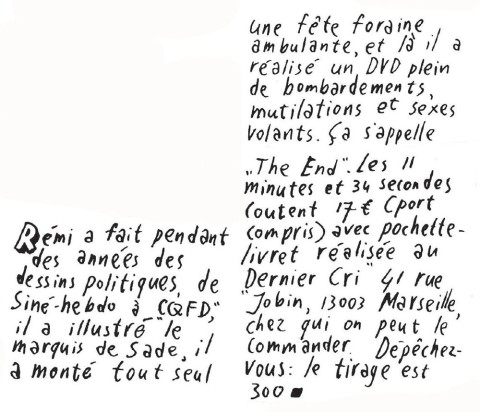 Rémi a fait pendant
des années des
dessins politiques, de
Siné-hebdo à "CQFD,"
il a illustré le
marquis de Sade, il
a monté tout seul
une fête foraine
ambulante, et là il a
réalisé un DVD plein
de bombardements,
mutilations et sexes
volants. Ça s'appelle
„The End". Les 11
minutes et 34 secondes
coutent 17€ (port
compris) avec pochette-
livret réalisée au
Dernier Cri" 41 rue
"Jobin, 13003 Marseille,
chez qui on peut le
commander. Dépêchez-
vous: le tirage est
300